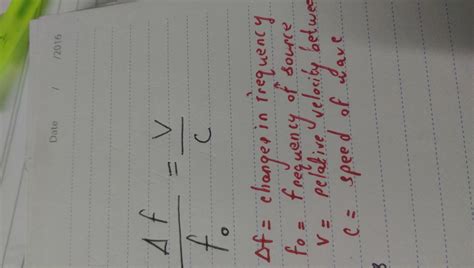 Date / /2016
Δf / f₀ = v / c
Δf = changes in frequency
f₀ = frequency of source
v = relative velocity betwee
c = speed of wave